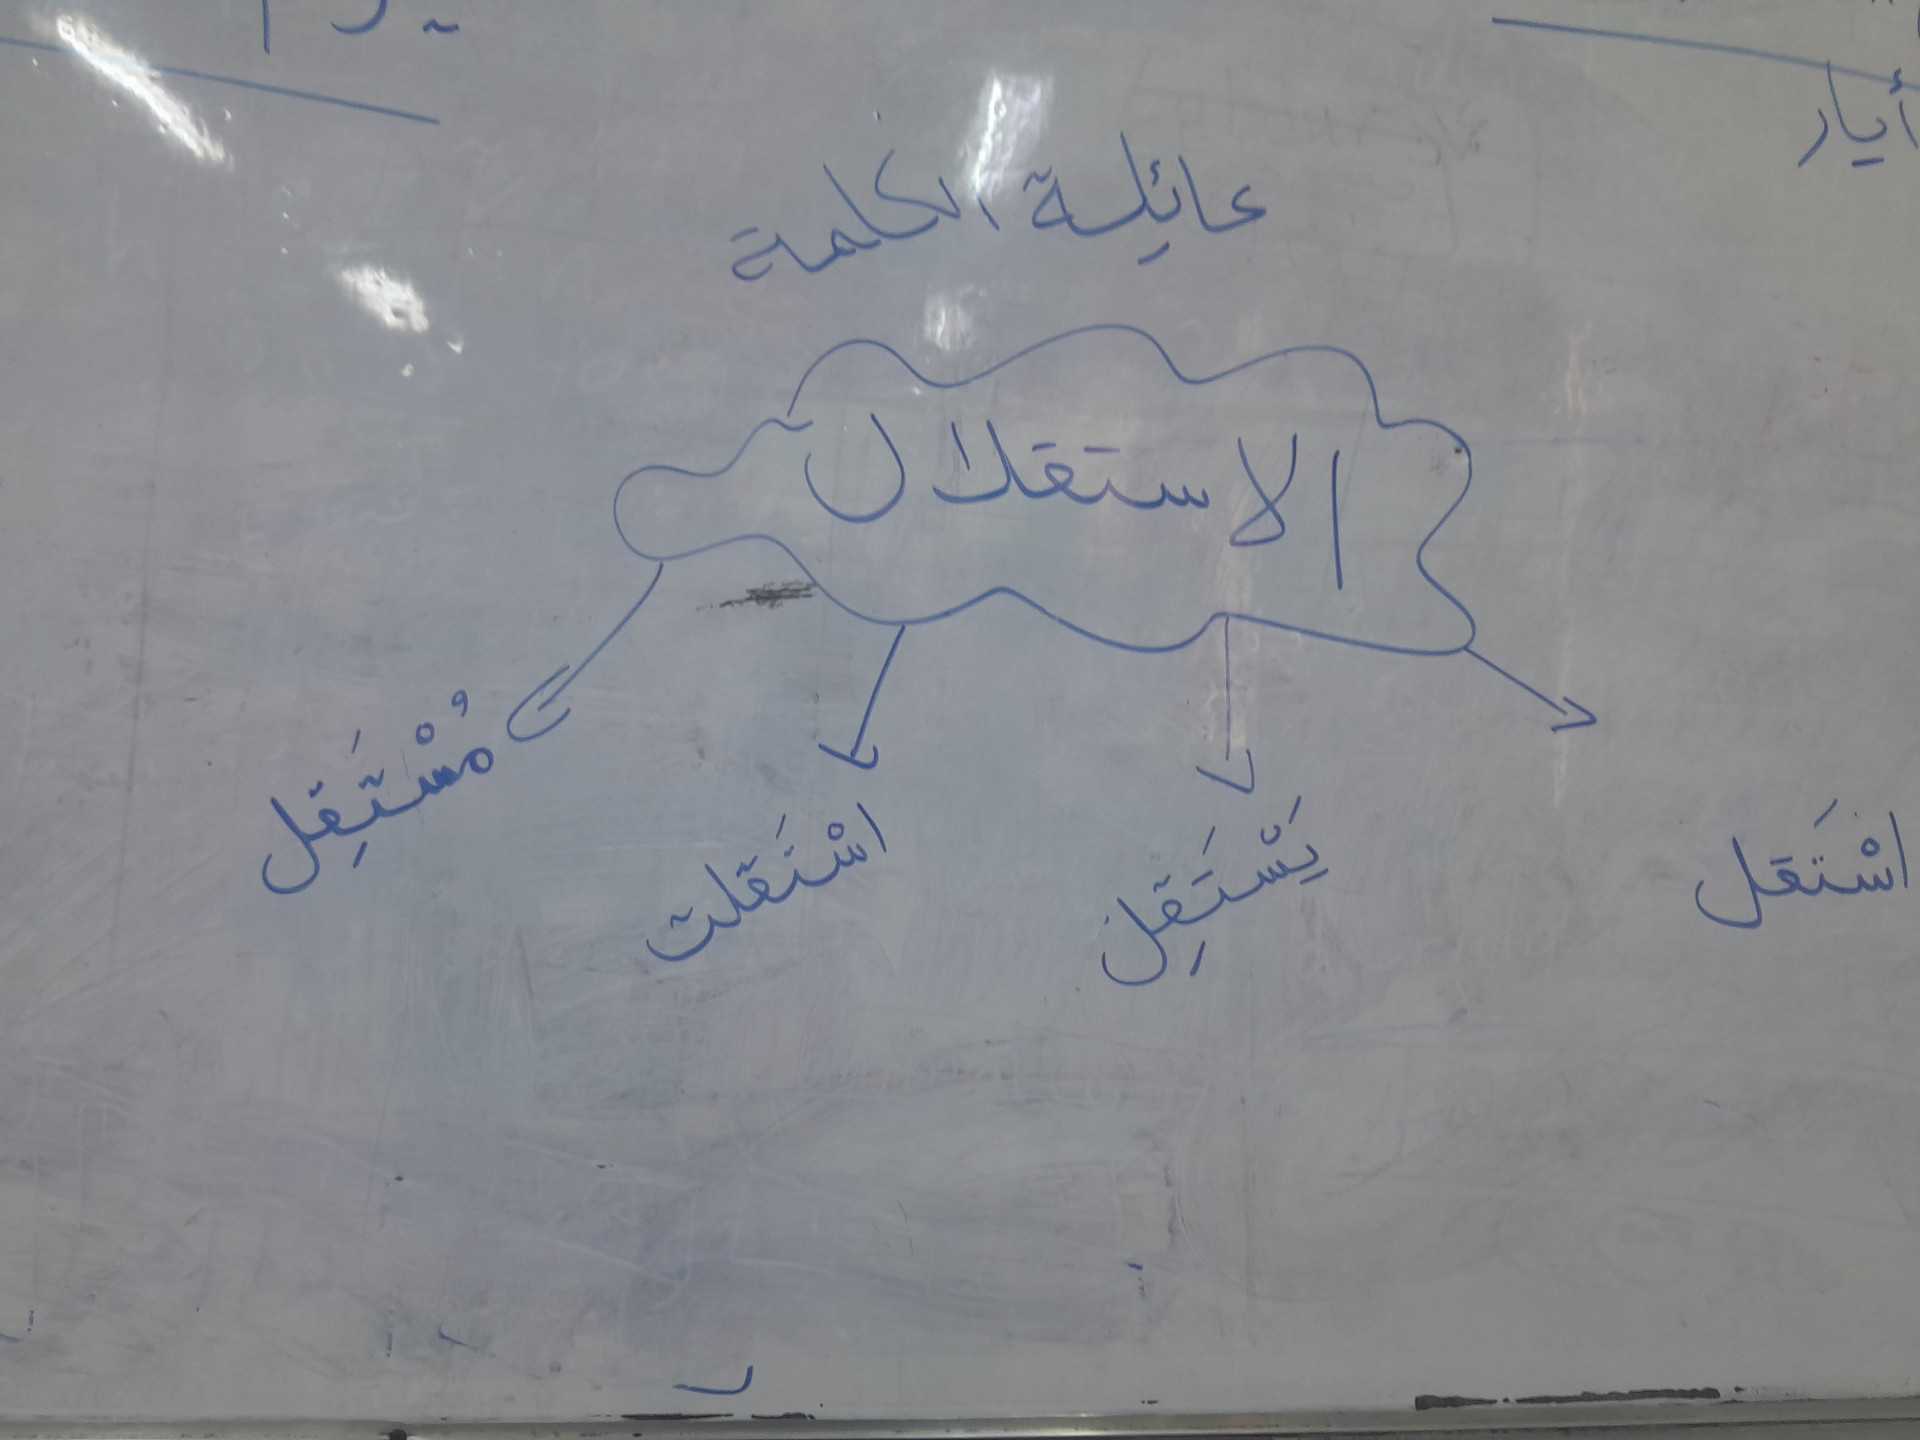 أيار
عائلة الكلمة
الاستقلال
اسْتَقل
يَسْتَقِل
اسْتَقلت
مُسْتَقِل